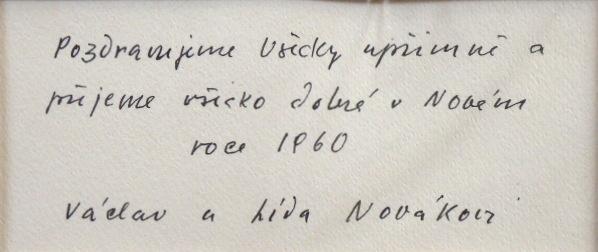 Pozdravujeme Všicky upřímně a
přejeme všicko dobré v Novém
roce 1960
Václav a Lída Novákovi